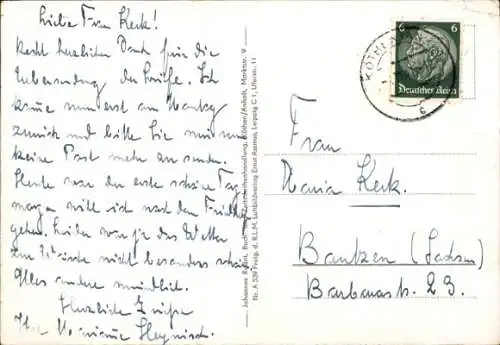 Liebe Frau Kerk!
Recht herzlichen Dank für die
Übersendung der Briefe. Ich
komme nun erst am Montag
zurück und bitte Sie mir nun
keine Post mehr zu senden.
Heute war der erste schöne Tag
morgen will ich nach den
gehen. Leider war ja das Wetter
zum nicht besonders schön
Alles andere mündlich.
Herzliche Grüße
Ihre
Johannes Buch- und Zeitschriftenhandlung, Köthen/Anhalt, Marktstr. 9
Nr. A 539 Freig. d. R.L.M. Luftbildverlag Ernst Assmus, Leipzig C 1, Uferstr. 11
KÖTHEN
6 6
Deutsches Reich
Frau
Maria Kerk.
Bautzen (Sachsen)
Barbarastr. 23.